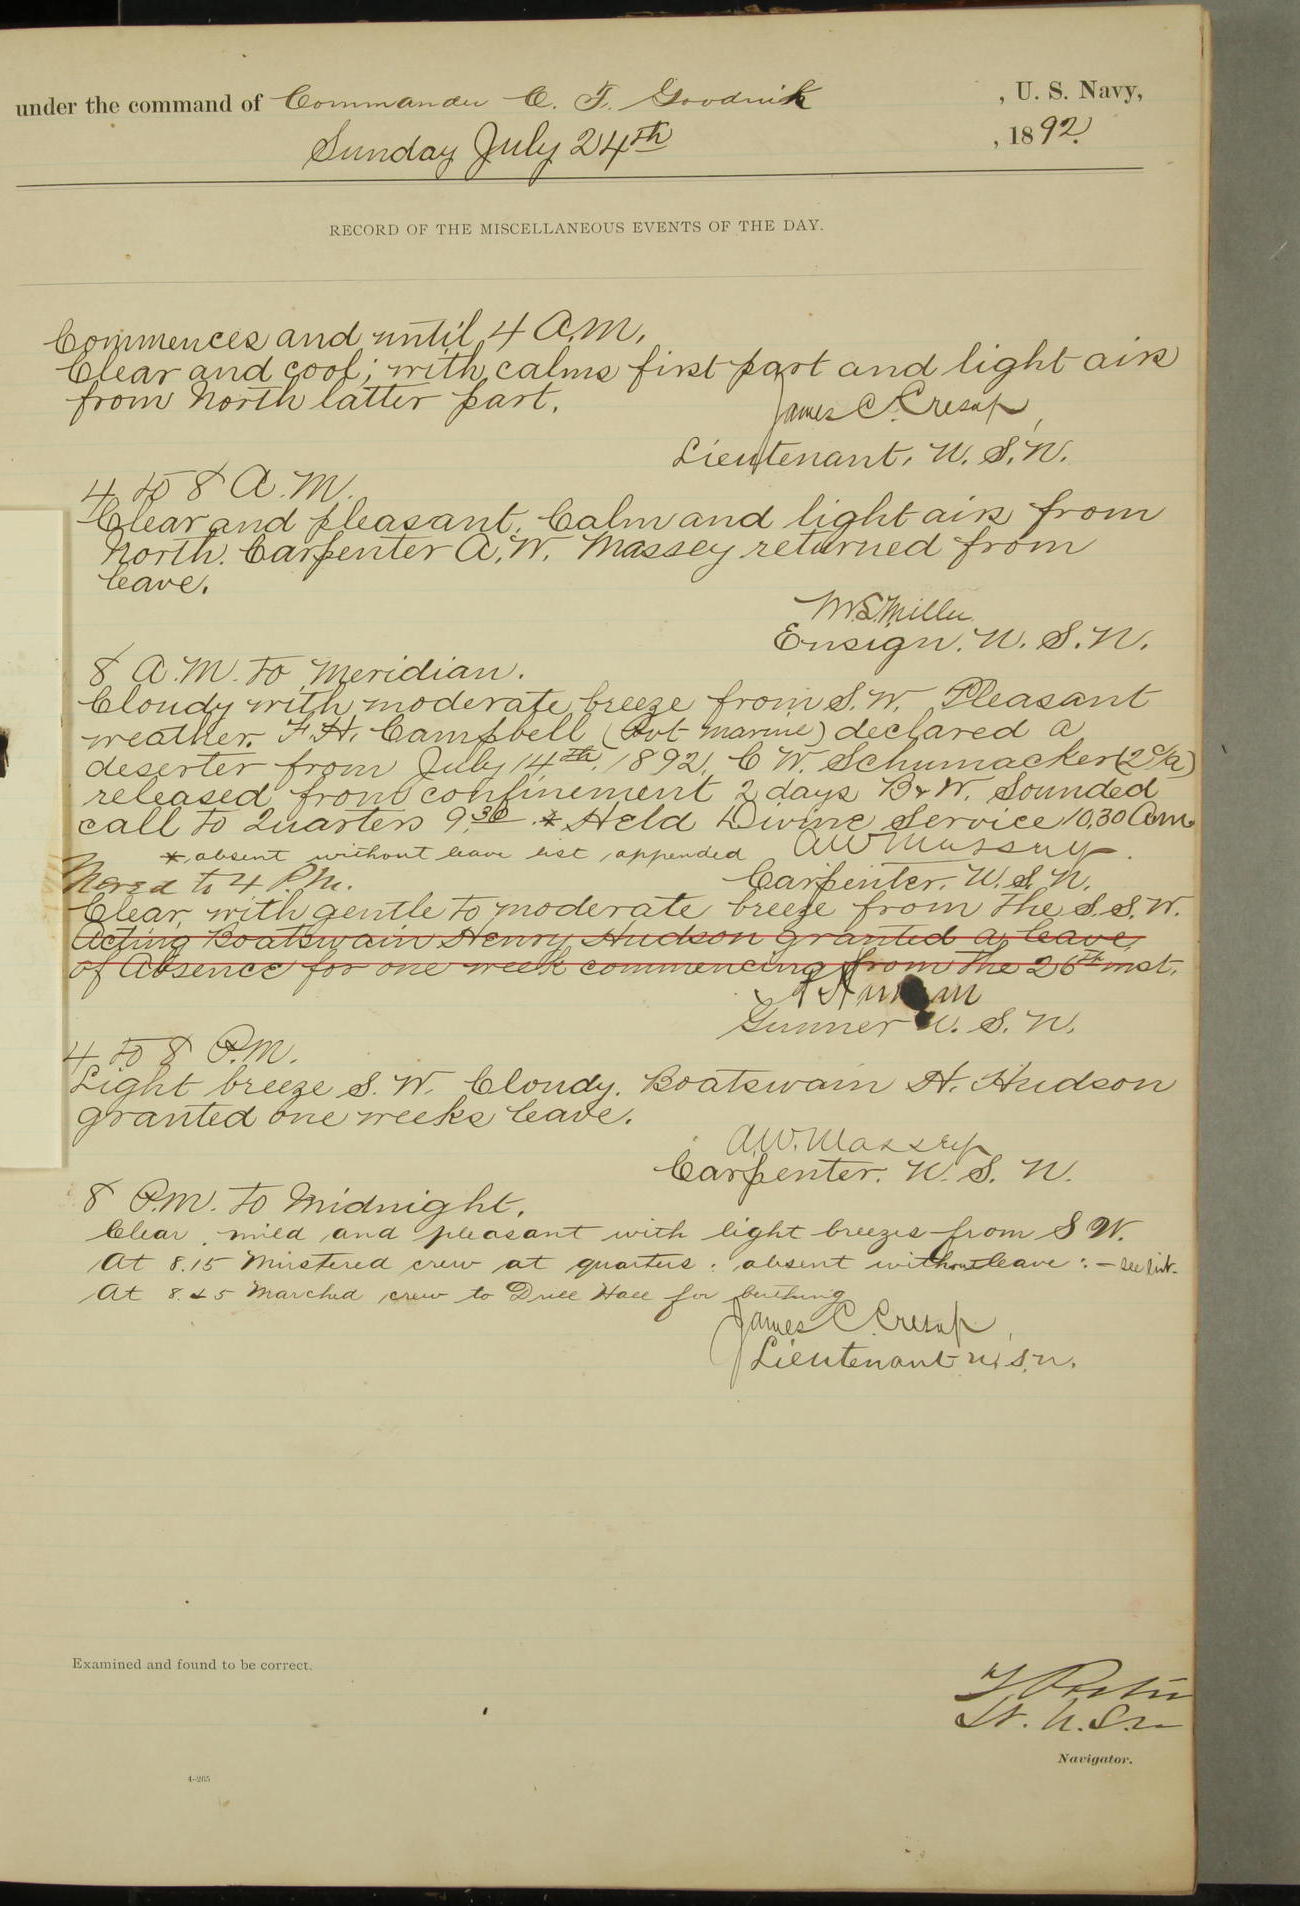 under the command of Commander C. F. Goodrich , U. S. Navy,
Sunday July 24th , 1892.
RECORD OF THE MISCELLANEOUS EVENTS OF THE DAY.
Commences and until 4 A.M.
Clear and cool; with calms first part and light airs
from North latter part.
James C. Cresap,
Lieutenant. U. S. N.
4 to 8 A.M.
Clear and pleasant. Calm and light airs from
North. Carpenter A. W. Massey returned from
leave.
W.S. Miller
Ensign. U. S. N.
8 A.M. to Meridian.
Cloudy with moderate breeze from S. W. Pleasant
weather. F. H. Campbell (Pvt marine) declared a
deserter from July 14th 1892. C. W. Schumacker (2 c/a)
released from confinement 2 days B & W. Sounded
call to Quarters 9.30 * Held Divine Service 10.30 a.m.
* absent without leave list appended
A W Massey
Carpenter. U. S. N.
Mered to 4 P.M.
Clear, with gentle to moderate breeze from the S. S. W.
Acting Boatswain Henry Hudson granted a leave
of Absence for one week commencing from the 26th inst.
Gunner U. S. N.
4 to 8 P.M.
Light breeze S. W. Cloudy. Boatswain H. Hudson
granted one weeks leave.
A. W. Massey
Carpenter. U. S. N.
8 P.M. to Midnight.
Clear, mild and pleasant with light breezes from S W.
At 8.15 Mustered crew at quarters: absent without leave: - see list.
At 8.45 Marched crew to Drill Hall for berthing
James C. Cresap,
Lieutenant U. S. N.
Examined and found to be correct.
Lt. U. S. N.
Navigator.
4-265